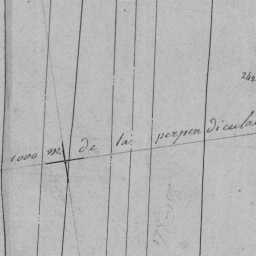 242
1000 m de la perpendicula